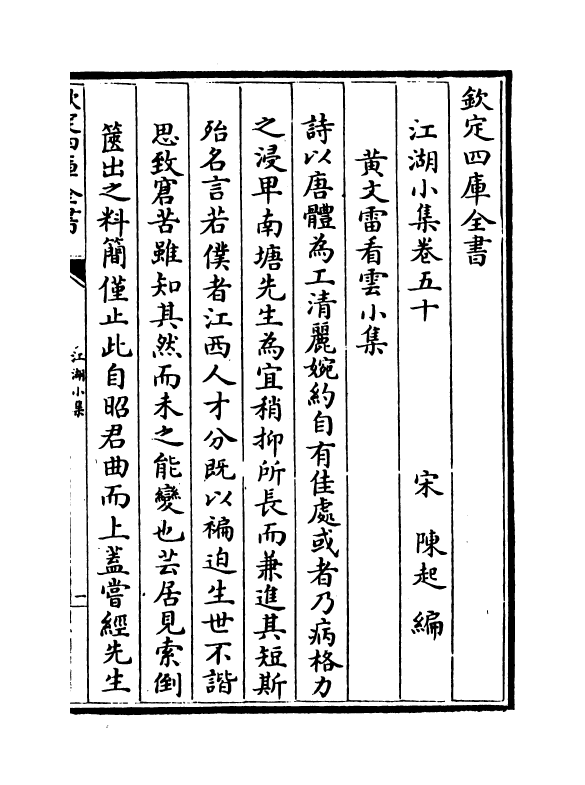 欽定四庫全書
江湖小集卷五十
宋 陳起 編
黃文雷看雲小集
詩以唐體為工清麗婉約自有佳處或者乃病格力
之浸卑南塘先生為宜稍抑所長而兼進其短斯
殆名言若僕者江西人才分既以褊迫生世不諧
思致窘苦雖知其然而未之能變也芸居見索倒
篋出之料簡僅止此自昭君曲而上蓋嘗經先生
欽定四庫全書
江湖小集
一